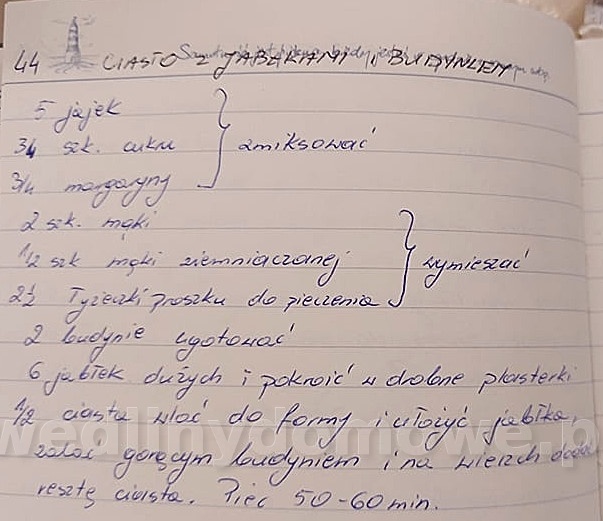 44 CIASTO Z JABŁKAMI I BUDYNIEM
5 jajek
3/4 szk. cukru } zmiksować
3/4 margaryny
2 szk. mąki
1/2 szk mąki ziemniaczanej } wymieszać
2 1/2 łyżeczki proszku do pieczenia
2 budynie ugotować
6 jabłek dużych i pokroić w drobne plasterki
1/2 ciasta wlać do formy i ułożyć jabłka,
zalać gorącym budyniem i na wierzch dodać
resztę ciasta. Piec 50-60 min.
wedlinydomowe.p